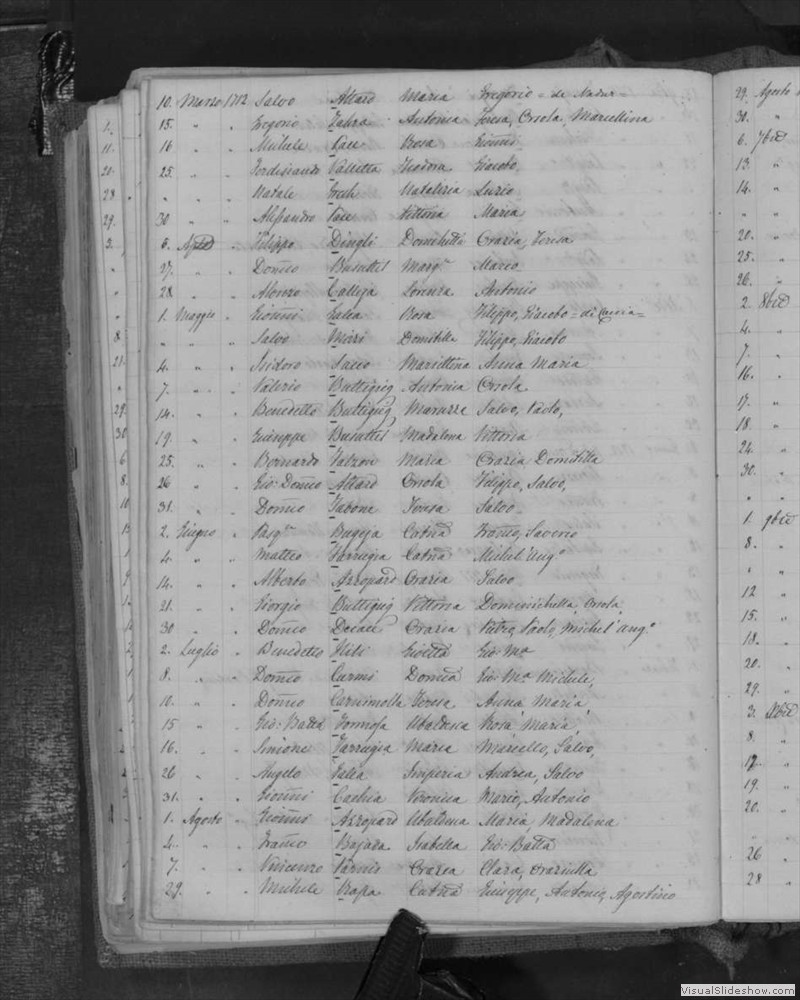 10. Marzo 1712 Salvo Attard Maria Gregorio = de Nadur
15. " " Gregorio Zahra Antonia Teresa, Orsola, Marcellina
16 " " Michele Pace Rosa Gioñni
25. " " Ferdinando Valletta Teodora Giacobo,
" " " Natale Grech Natalizia Lucio
30 " " Alessandro Pace Vittoria Maria
6. Aple " Filippo Dingli Domitilla Grazia, Teresa
27. " " Domco Busuttil Margta Mario
28. " " Alonzo Calleja Lorenza Antonio
1. Maggio " Gioñni Galea Rosa Filippo, Giacobo =
" " " Salvo Mizzi Domitilla Filippo, Giacobo
4. " " Isidoro Sacco Mariettina Anna Maria
7. " " Valerio Buttigieg Antonia Orsola
14. " " Benedetto Buttigieg Maruzza Salvo, Paolo,
19. " " Giuseppe Busuttil Madalena Vittoria
25. " " Bernardo Falzon Maria Grazia Domitilla
26 " " Gio: Domco Attard Orsola Filippo, Salvo,
31. " " Domco Tabone Teresa Salvo
2. Giugno " Pasqle Bugeja Catna Franco, Saverio
4. " " Matteo Farrugia Catna Michel'Ango
14. " " Alberto Azzopard Grazia Salvo
21. " " Giorgio Buttigieg Vittoria Orsola,
30 " " Domco Grazia Pietro, Paolo, Michel'ango
2. Luglio " Benedetto Gio: Ma
8. " " Domco Curmi Domca Gio: Ma Michele,
10. " " Domco Teresa Anna Maria,
15 " " Gio: Batta Formosa Ubaldesca Rosa Maria,
16. " " Simione Farrugia Maria Marcello, Salvo,
26 " " Angelo Galea Imperia Andrea, Salvo
31. " " Gioñni Cachia Veronica Mario, Antonio
1. Agosto " Gioñni Azzopard Ubaldesca Maria, Madalena
4. " " Franco Bajada Isabella Gio: Batta
7. " " Vincenzo Varnis Grazia Clara, Graziulla
29. " " Michele Xapa Catna Giuseppe, Antonio, Agostino
1.
11.
21.
28
29.
3.
"
"
"
8
21.
"
29.
30
6
8.
10
29. Agosto
30. "
6. 7bre
13. "
14. "
" "
20. "
25. "
26. "
2. 8bre
4. "
7. "
16. "
17. "
18. "
24. "
30. "
" "
1. 9bre
8. "
" "
12 "
15. "
18. "
20. "
29. "
3. Xbre
8. "
17. "
19. "
20. "
26 "
28 "
VisualSlideshow.com